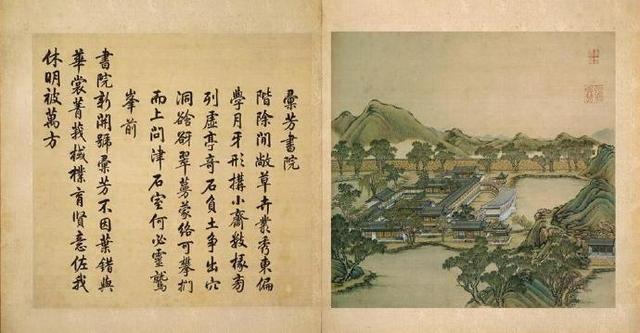 彚芳書院
階除閒敞草卉叢秀東偏
學月牙形搆小齋數椽旁
列虛亭奇石負土爭出穴
洞谽谺翠蔓蒙絡可攀捫
而上問津石室何必靈鷲
峯前
書院新開號彚芳不因葉錯與
華裳菁莪棫樸育賢意佐我
休明被萬方